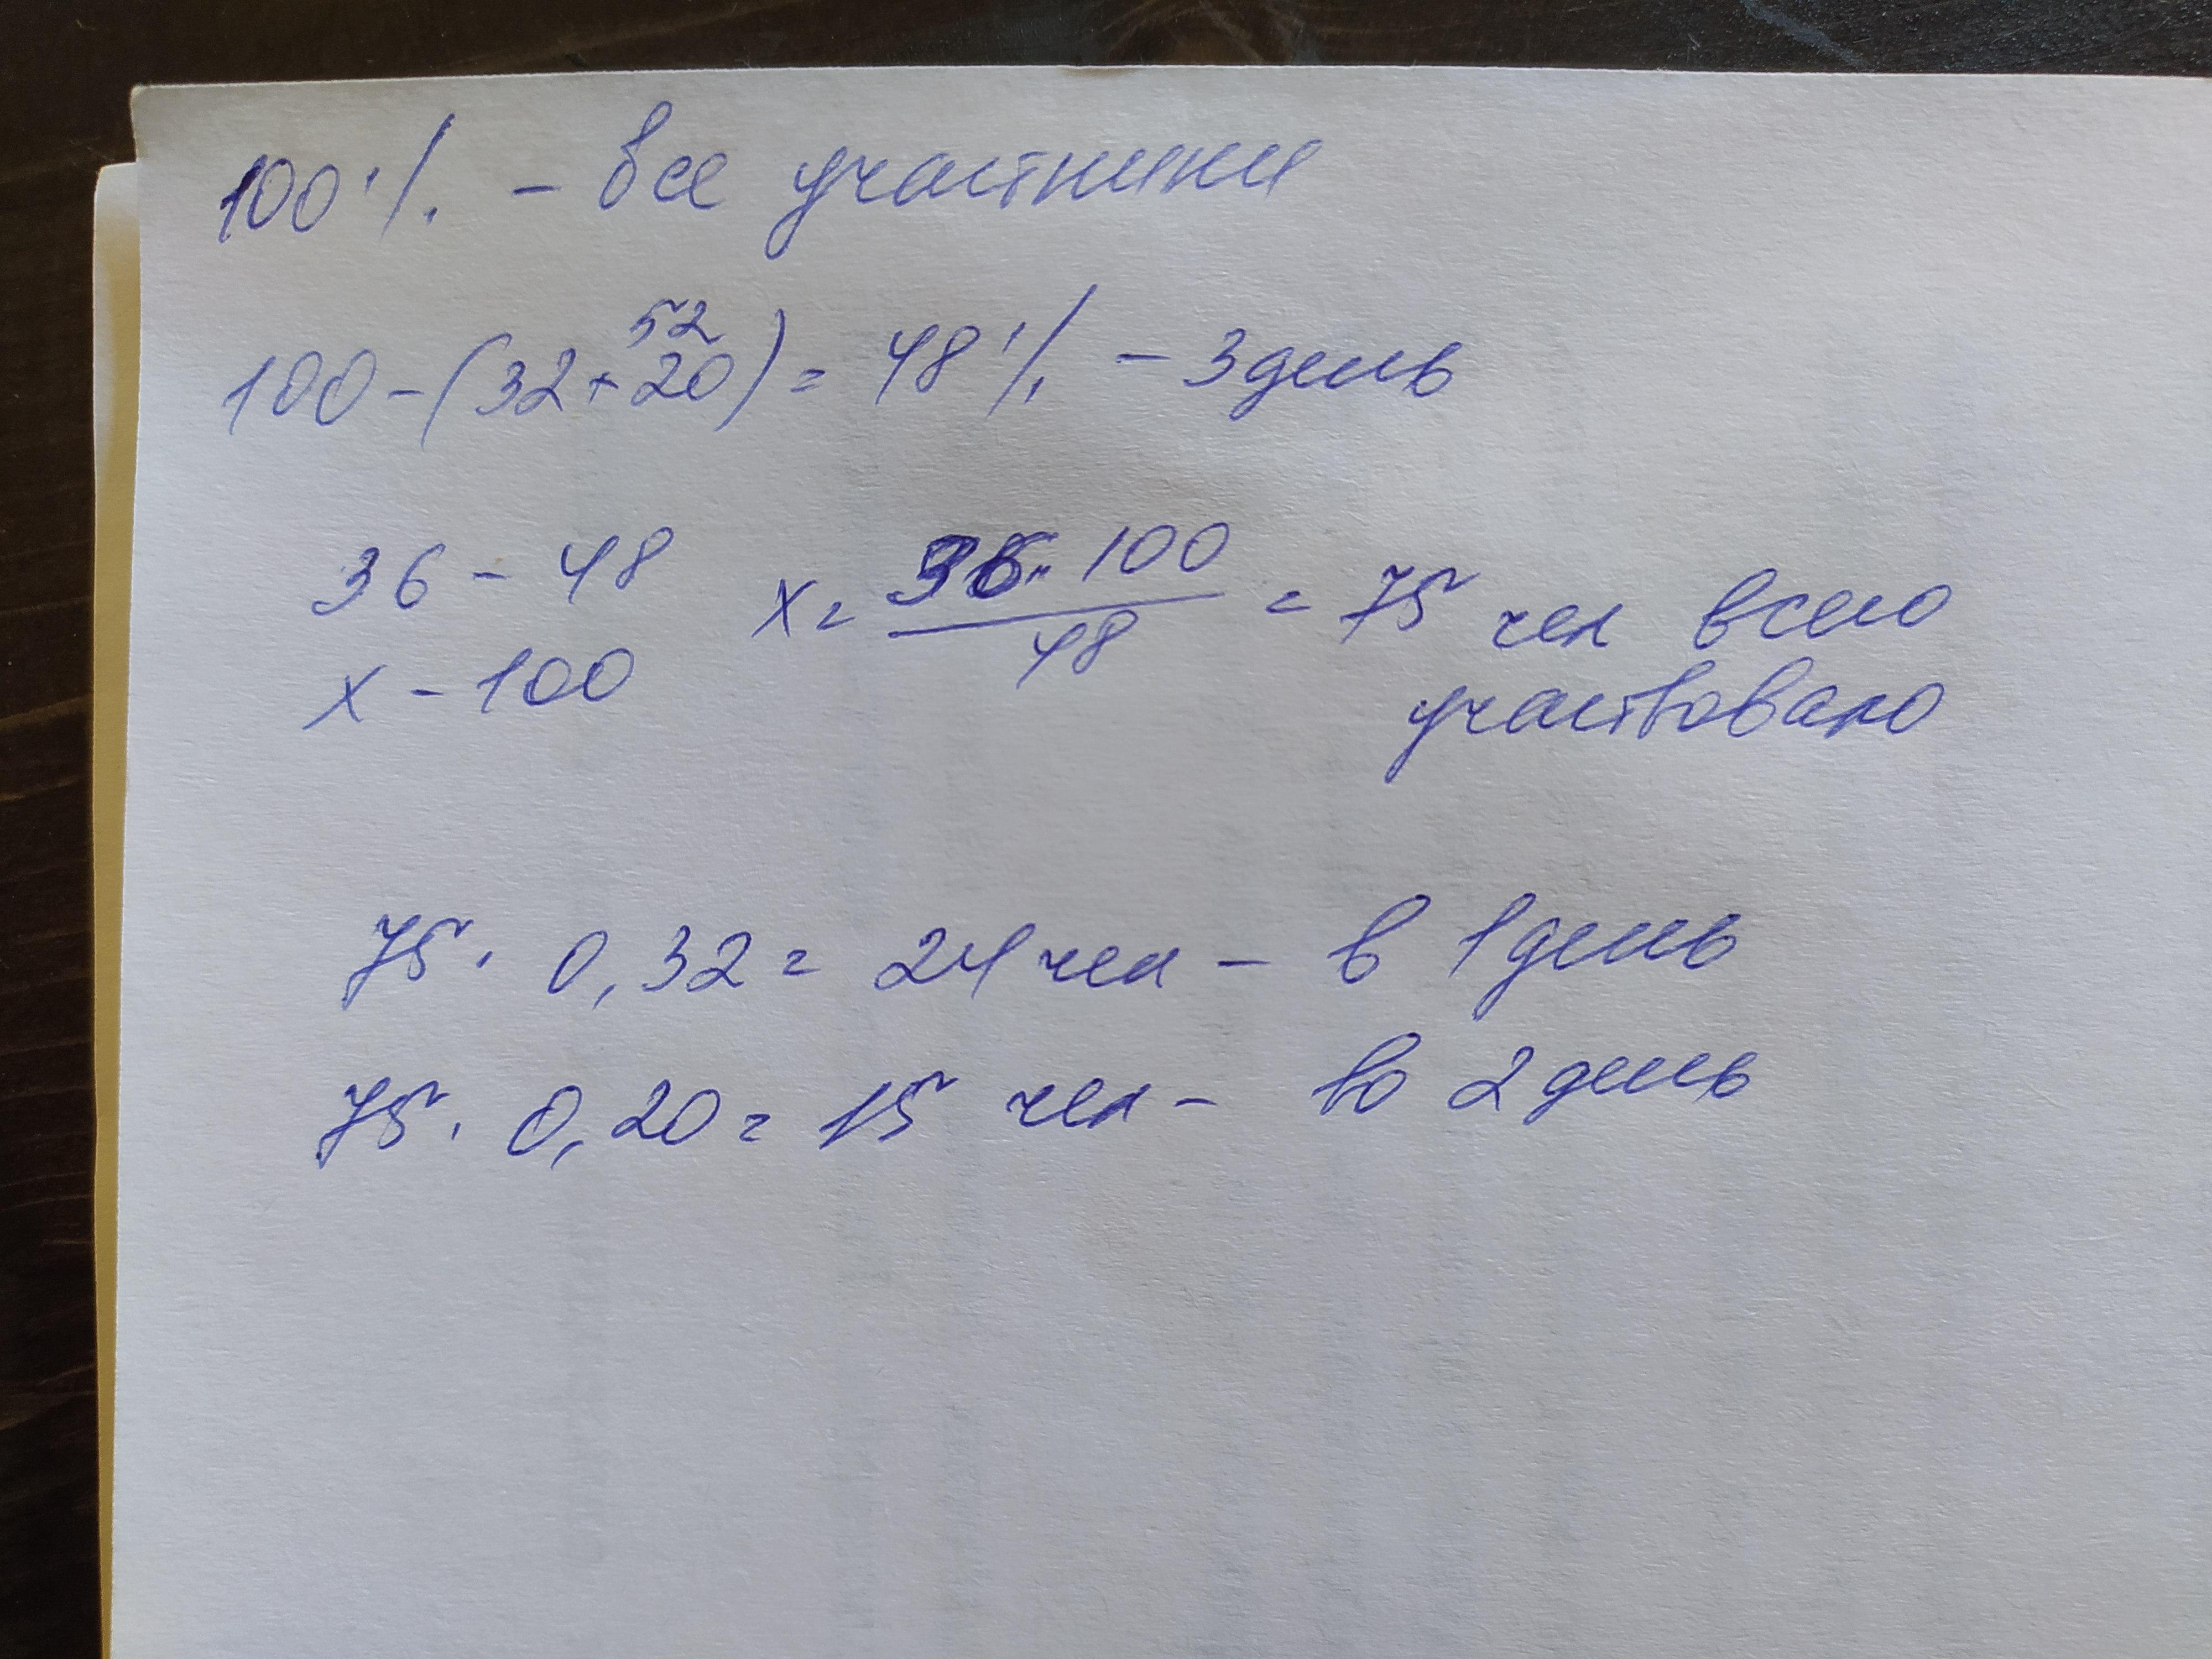 100% - все участники
52
100 - (32 + 20) = 48% - 3 день
36 - 48 x = 36 · 100 / 48 = 75 чел всего
x - 100 участвовало
75 · 0,32 = 24 чел - в 1 день
75 · 0,20 = 15 чел - во 2 день